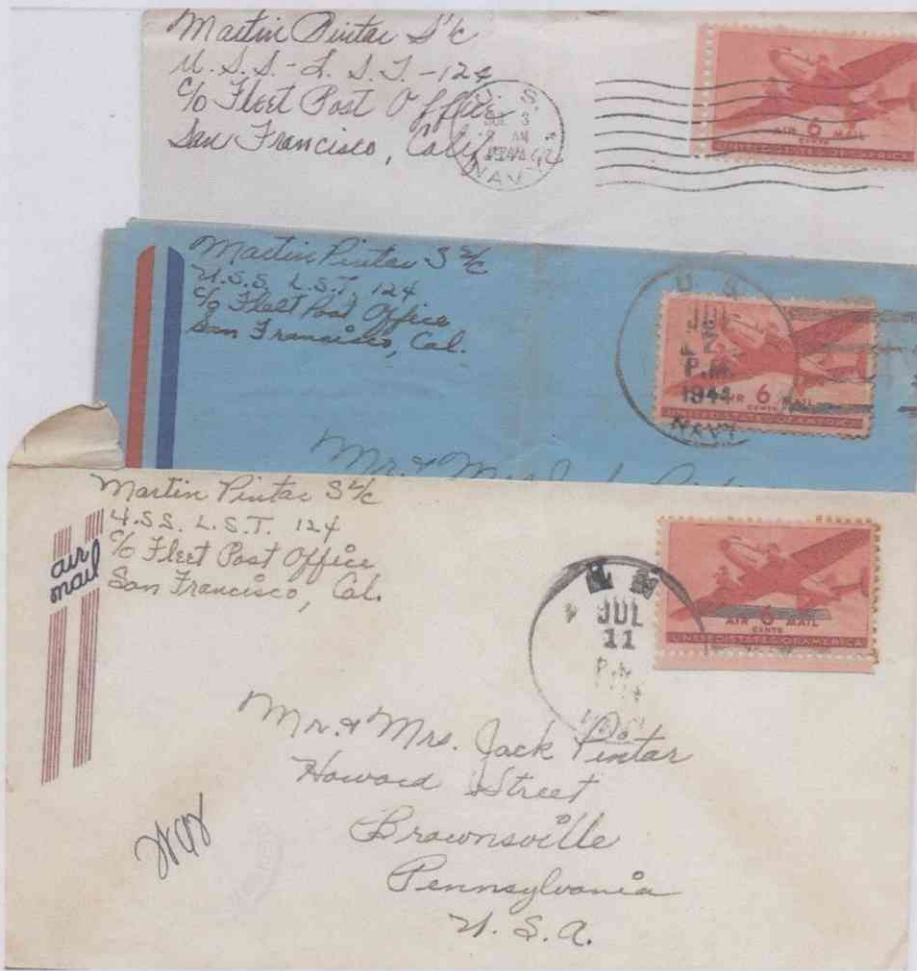 Martin Pintar S 1/c
U.S.S - L.S.T. - 124
c/o Fleet Post Office
San Francisco, Calif
U. S.
3
AM
NAVY
AIR 6 MAIL
CENTS
UNITED STATES OF AMERICA
Martin Pintar S 2/c
U.S.S. L.S.T. 124
c/o Fleet Post Office
San Francisco, Cal.
U S
P.M.
1944
NAVY
AIR 6 MAIL
CENTS
UNITED STATES OF AMERICA
Mr. & Mrs. Jack
Martin Pintar S 2/c
U.S.S. L.S.T. 124
c/o Fleet Post Office
San Francisco, Cal.
air
mail
JUL
11
P.M.
AIR 6 MAIL
CENTS
UNITED STATES OF AMERICA
Mr. & Mrs. Jack Pintar
Howard Street
Brownsville
Pennsylvania
U. S. A.